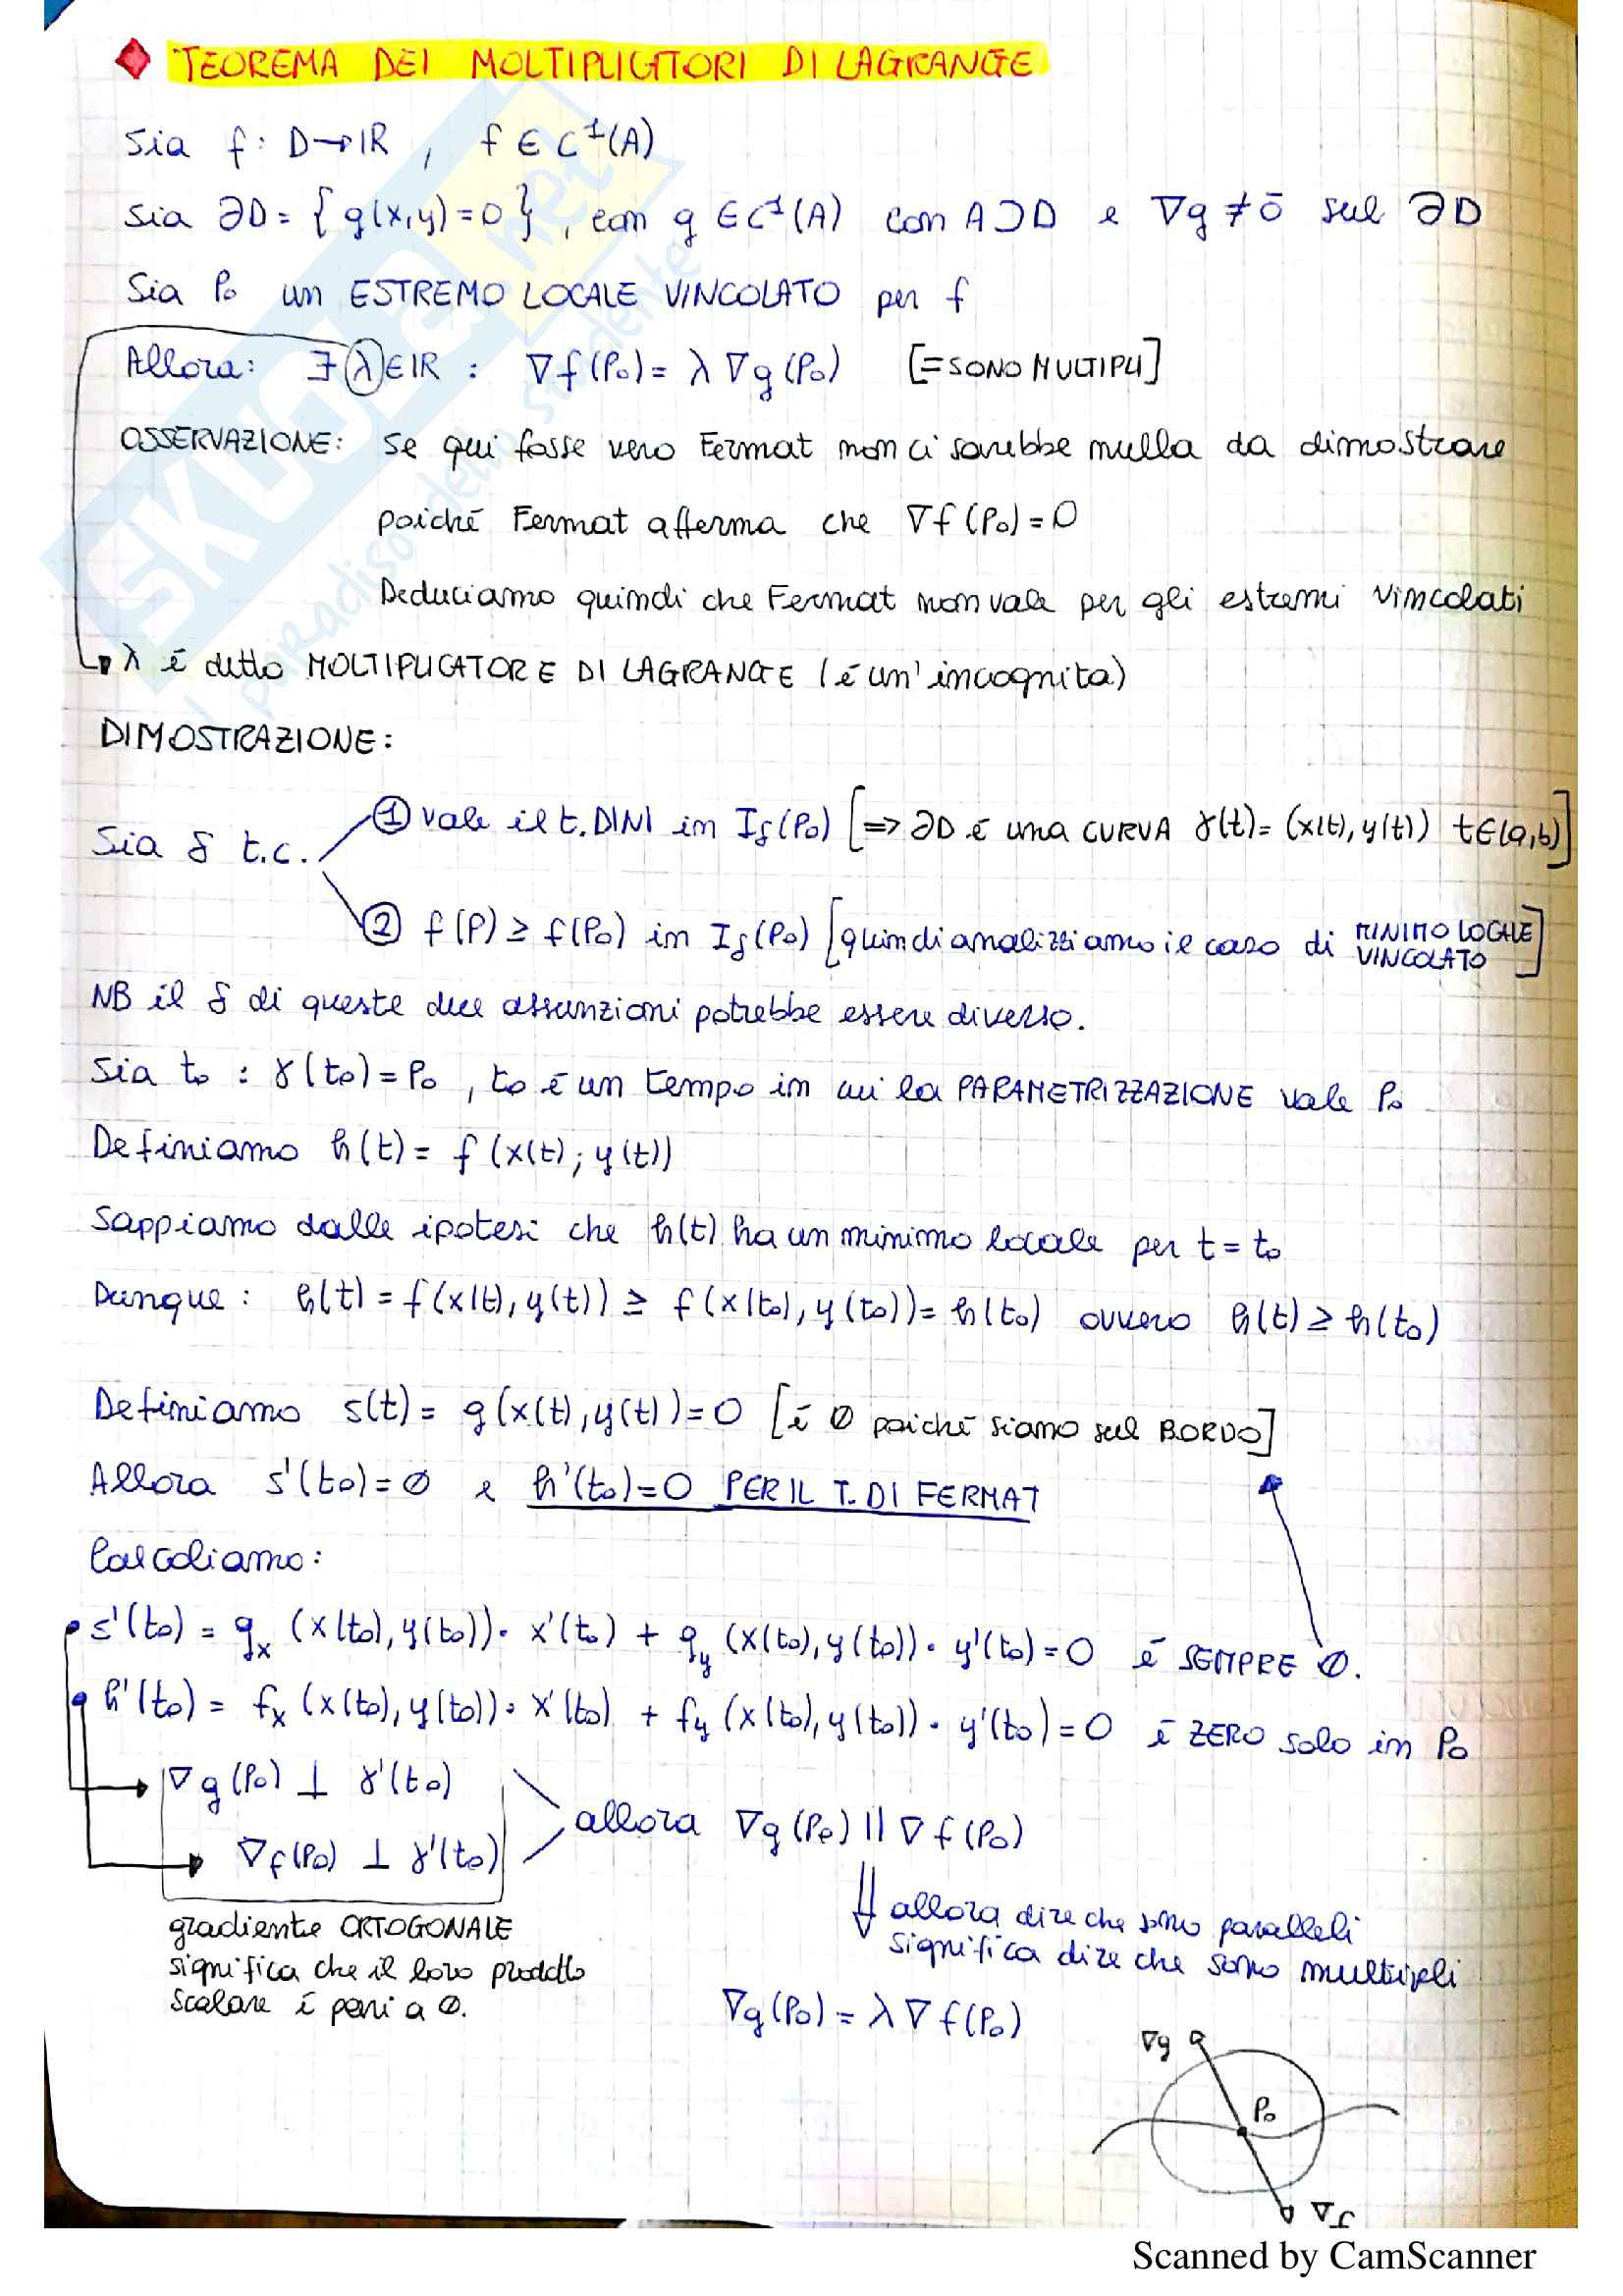 TEOREMA DEI MOLTIPLICATORI DI LAGRANGE
Sia f: D→ℝ, f ∈ C¹(A)
Sia ∂D = {g(x,y)=0}, con g ∈ C¹(A) con A⊃D e ∇g ≠ 0̄ sul ∂D
Sia P₀ un ESTREMO LOCALE VINCOLATO per f
Allora: ∃ λ ∈ ℝ : ∇f(P₀) = λ ∇g(P₀) [= SONO MULTIPLI]
OSSERVAZIONE: Se qui fosse vero Fermat non ci sarebbe nulla da dimostrare
poiché Fermat afferma che ∇f(P₀)=0
Deduciamo quindi che Fermat non vale per gli estremi vincolati
λ è detto MOLTIPLICATORE DI LAGRANGE (é un'incognita)
DIMOSTRAZIONE:
Sia δ t.c.
① vale il t. DINI in I_δ(P₀) [⇒ ∂D é una CURVA γ(t) = (x(t), y(t)) t∈(a,b)]
② f(P) ≥ f(P₀) in I_δ(P₀) [quindi analizziamo il caso di MINIMO LOCALE VINCOLATO]
NB il δ di queste due assunzioni potrebbe essere diverso.
Sia t₀ : γ(t₀)=P₀, t₀ é un tempo in cui la PARAMETRIZZAZIONE vale P₀
Definiamo h(t) = f(x(t); y(t))
Sappiamo dalle ipotesi che h(t) ha un minimo locale per t = t₀
Dunque: h(t) = f(x(t), y(t)) ≥ f(x(t₀), y(t₀)) = h(t₀) ovvero h(t) ≥ h(t₀)
Definiamo s(t) = g(x(t), y(t)) = 0 [é ∅ poiché siamo sul BORDO]
Allora s'(t₀)=∅ e h'(t₀)=0 PER IL T. DI FERMAT
Calcoliamo:
s'(t₀) = gₓ (x(t₀), y(t₀)) · x'(t₀) + g_y (x(t₀), y(t₀)) · y'(t₀) = 0 é SEMPRE ∅.
h'(t₀) = fₓ (x(t₀), y(t₀)) · x'(t₀) + f_y (x(t₀), y(t₀)) · y'(t₀) = 0 é ZERO solo in P₀
∇g(P₀) ⊥ γ'(t₀)
∇f(P₀) ⊥ γ'(t₀)
allora ∇g(P₀) || ∇f(P₀)
gradiente ORTOGONALE
significa che il loro prodotto
scalare é pari a ∅.
⇓ allora dire che sono paralleli
significa dire che sono multipli
∇g(P₀) = λ ∇f(P₀)
∇g
P₀
∇f
SKUOLA.net
il paradiso dello studente
Scanned by CamScanner